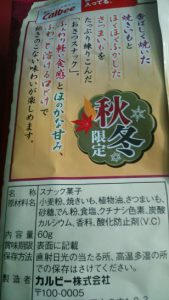 Calbee
香ばしく焼いた
焼きいもと
ほくほくふかした
さつまいもを
たっぷり練りこんだ
「おさつスナック」。
ふんわり軽い食感と
ほのかな甘み、
ふわっと溶ける口どけで
飽きのこない味わいが楽しめます。
秋冬
限定
名称 スナック菓子
原材料名 小麦粉、焼きいも、植物油、さつまいも、
砂糖、でん粉、食塩、クチナシ色素、炭酸
カルシウム、香料、酸化防止剤(V.C)
内容量 60g
賞味期限 表面に記載
保存方法 直射日光の当たる所、高温多湿の所
での保存はさけてください。
製造者 カルビー株式会社
〒100-0005